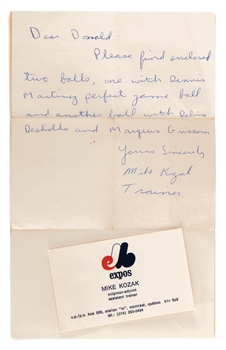 Dear Donald
Please find enclosed
two balls, one with Dennis
Martinez perfect game ball
and another ball with Delino
Deshields and Marquis Grissom
Yours Sincerely
Mike Kozak
Trainer
expos
MIKE KOZAK
soigneur-adjoint
assistant trainer
c.p./p.o. box 500, station "m", montréal, québec h1v 3p2
tél.: (514) 253-3434